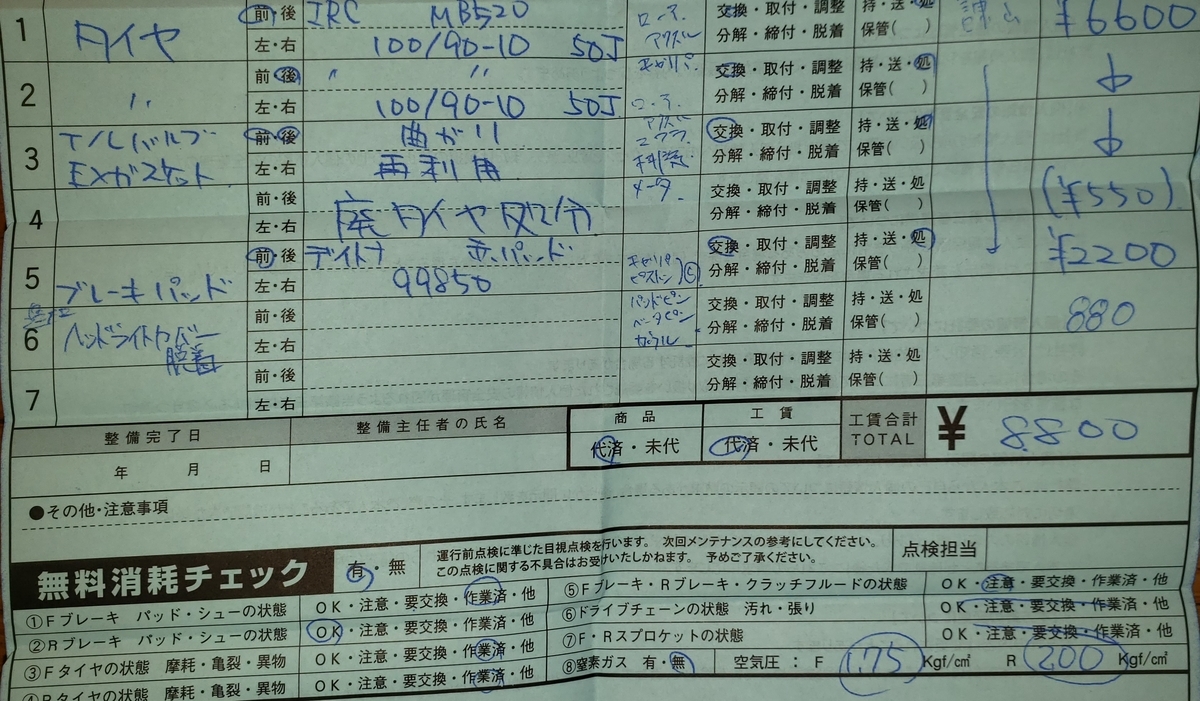 1 タイヤ 前・後 IRC MB520 ロード アクスル 交換・取付・調整 持・送・処 ¥6600
左・右 100/90-10 50J 分解・締付・脱着 保管( )
2 〃 前・後 〃 〃 キャリパ 交換・取付・調整 持・送・処
左・右 100/90-10 50J 分解・締付・脱着 保管( )
3 T/Lバルブ 前・後 曲がり 交換・取付・調整 持・送・処
EXガスケット 左・右 再利用 分解・締付・脱着 保管( )
4 前・後 廃タイヤ処分 交換・取付・調整 持・送・処 (¥550)
左・右 分解・締付・脱着 保管( )
5 ブレーキパッド 前・後 デイトナ 赤パッド キャリパ ピストン 交換・取付・調整 持・送・処 ¥2200
左・右 99850 分解・締付・脱着 保管( )
6 ヘッドライトカバー 脱着 前・後 パッドピン 交換・取付・調整 持・送・処 880
左・右 分解・締付・脱着 保管( )
7 前・後 交換・取付・調整 持・送・処
左・右 分解・締付・脱着 保管( )
整備完了日 整備主任者の氏名 商品 工賃 工賃合計 TOTAL ¥ 8800
年 月 日 代済・未代 代済・未代
●その他・注意事項
無料消耗チェック 有・無 運行前点検に準じた目視点検を行います。 次回メンテナンスの参考にしてください。 点検担当
この点検に関する不具合はお受けいたしかねます。 予めご了承ください。
①Fブレーキ パッド・シューの状態 OK・注意・要交換・作業済・他 ⑤Fブレーキ・Rブレーキ・クラッチフルードの状態 OK・注意・要交換・作業済・他
②Rブレーキ パッド・シューの状態 OK・注意・要交換・作業済・他 ⑥ドライブチェーンの状態 汚れ・張り OK・注意・要交換・作業済・他
③Fタイヤの状態 摩耗・亀裂・異物 OK・注意・要交換・作業済・他 ⑦F・Rスプロケットの状態 OK・注意・要交換・作業済・他
④Rタイヤの状態 摩耗・亀裂・異物 OK・注意・要交換・作業済・他 ⑧窒素ガス 有・無 空気圧: F 1.75 Kgf/c㎡ R 200 Kgf/c㎡